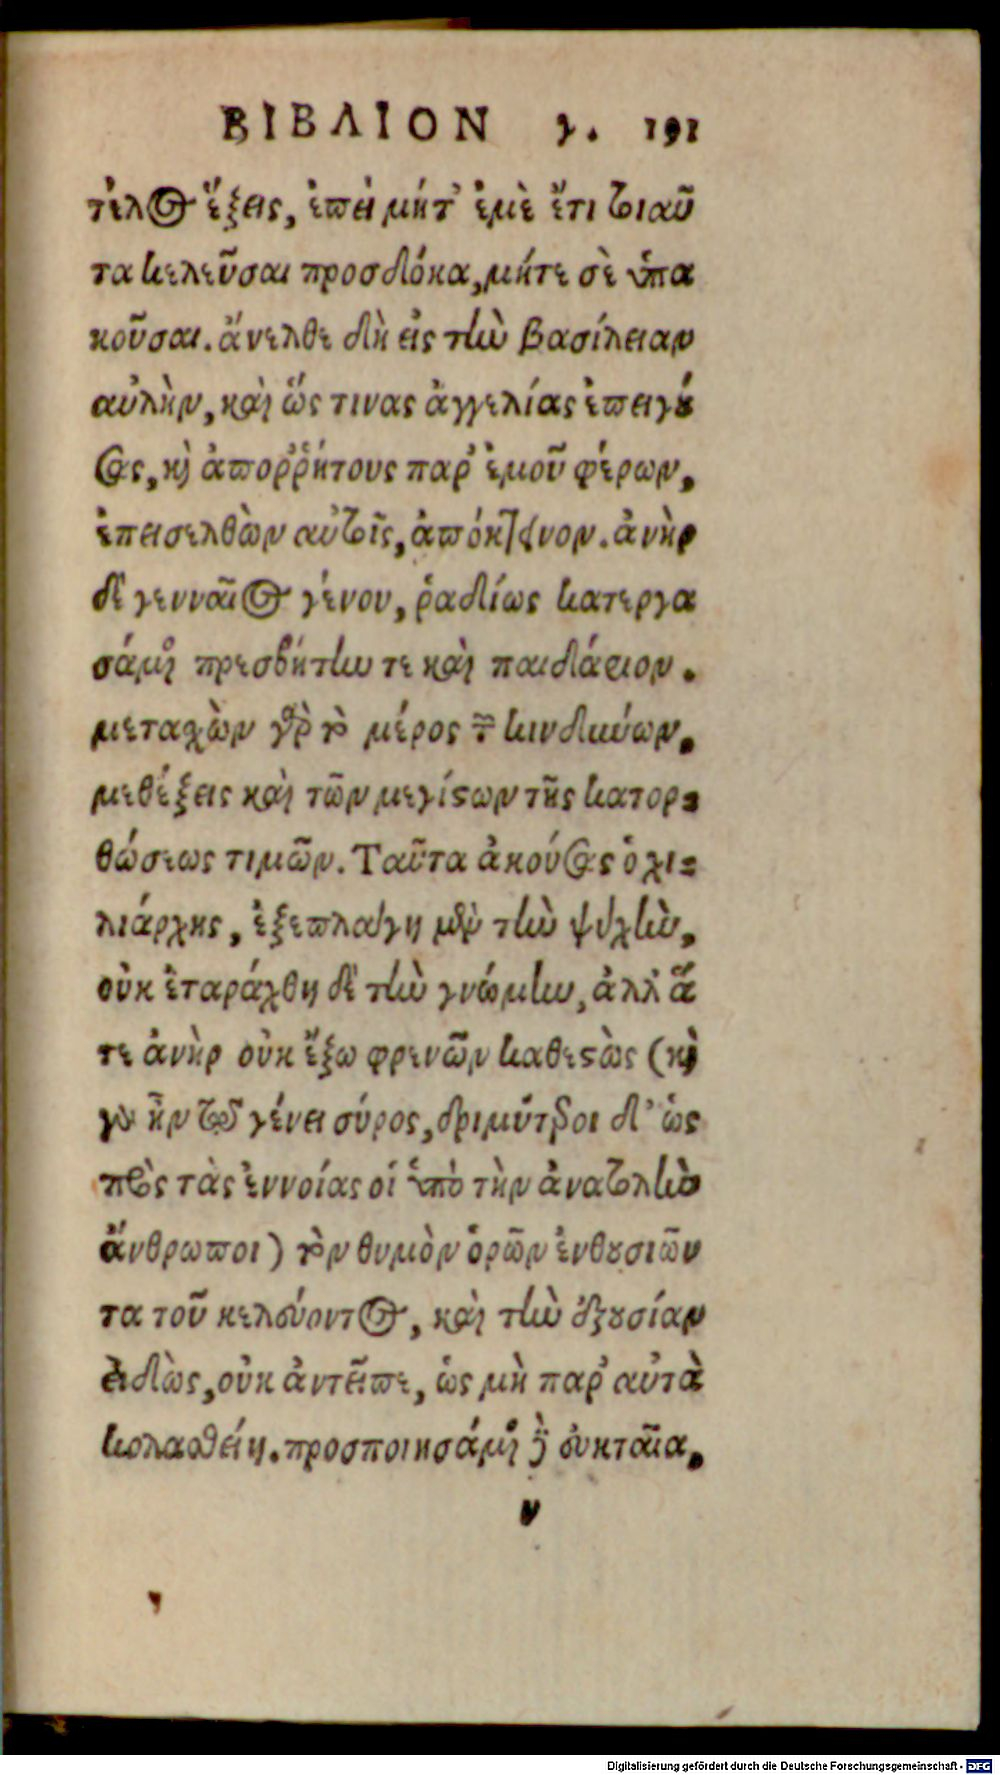 ΒΙΒΛΙΟΝ γ. 191
τέλος ἕξεις, ἐπεὶ μήτ' ἐμὲ ἔτι τοιαῦ
τα κελεῦσαι προσδόκα, μήτε σὲ ὑπα
κοῦσαι. ἄνελθε δὴ εἰς τὴν βασίλειαν
αὐλὴν, καὶ ὥς τινας ἀγγελίας ἐπειγού
σας, καὶ ἀποῤῥήτους παρ' ἐμοῦ φέρων,
ἐπεισελθὼν αὐτοῖς, ἀπόκτεινον. ἀνὴρ
δὲ γενναῖος γένου, ῥαδίως κατεργα
σάμενος πρεσβύτην τε καὶ παιδάριον.
μετασχὼν γὰρ τὸ μέρος τῶν κινδύνων,
μεθέξεις καὶ τῶν μεγίστων τῆς κατορ-
θώσεως τιμῶν. Ταῦτα ἀκούσας ὁ χι-
λιάρχης, ἐξεπλάγη μὲν τὴν ψυχὴν,
οὐκ ἐταράχθη δὲ τὴν γνώμην, ἀλλ' ἅ
τε ἀνὴρ οὐκ ἔξω φρενῶν καθεστὼς (καὶ
γὰρ ἦν τῷ γένει σύρος, δριμύτεροι δ' ὡς
πρὸς τὰς ἐννοίας οἱ ὑπὸ τὴν ἀνατολὴν
ἄνθρωποι) τὸν θυμὸν ὁρῶν ἐνθουσιῶν
τα τοῦ κελεύοντος, καὶ τὴν ἐξουσίαν
εἰδὼς, οὐκ ἀντεῖπε, ὡς μὴ παρ' αὐτὰ
κολασθείη. προσποιησάμενος δὲ εὐκταῖα,
ν
Digitalisierung gefördert durch die Deutsche Forschungsgemeinschaft - DFG